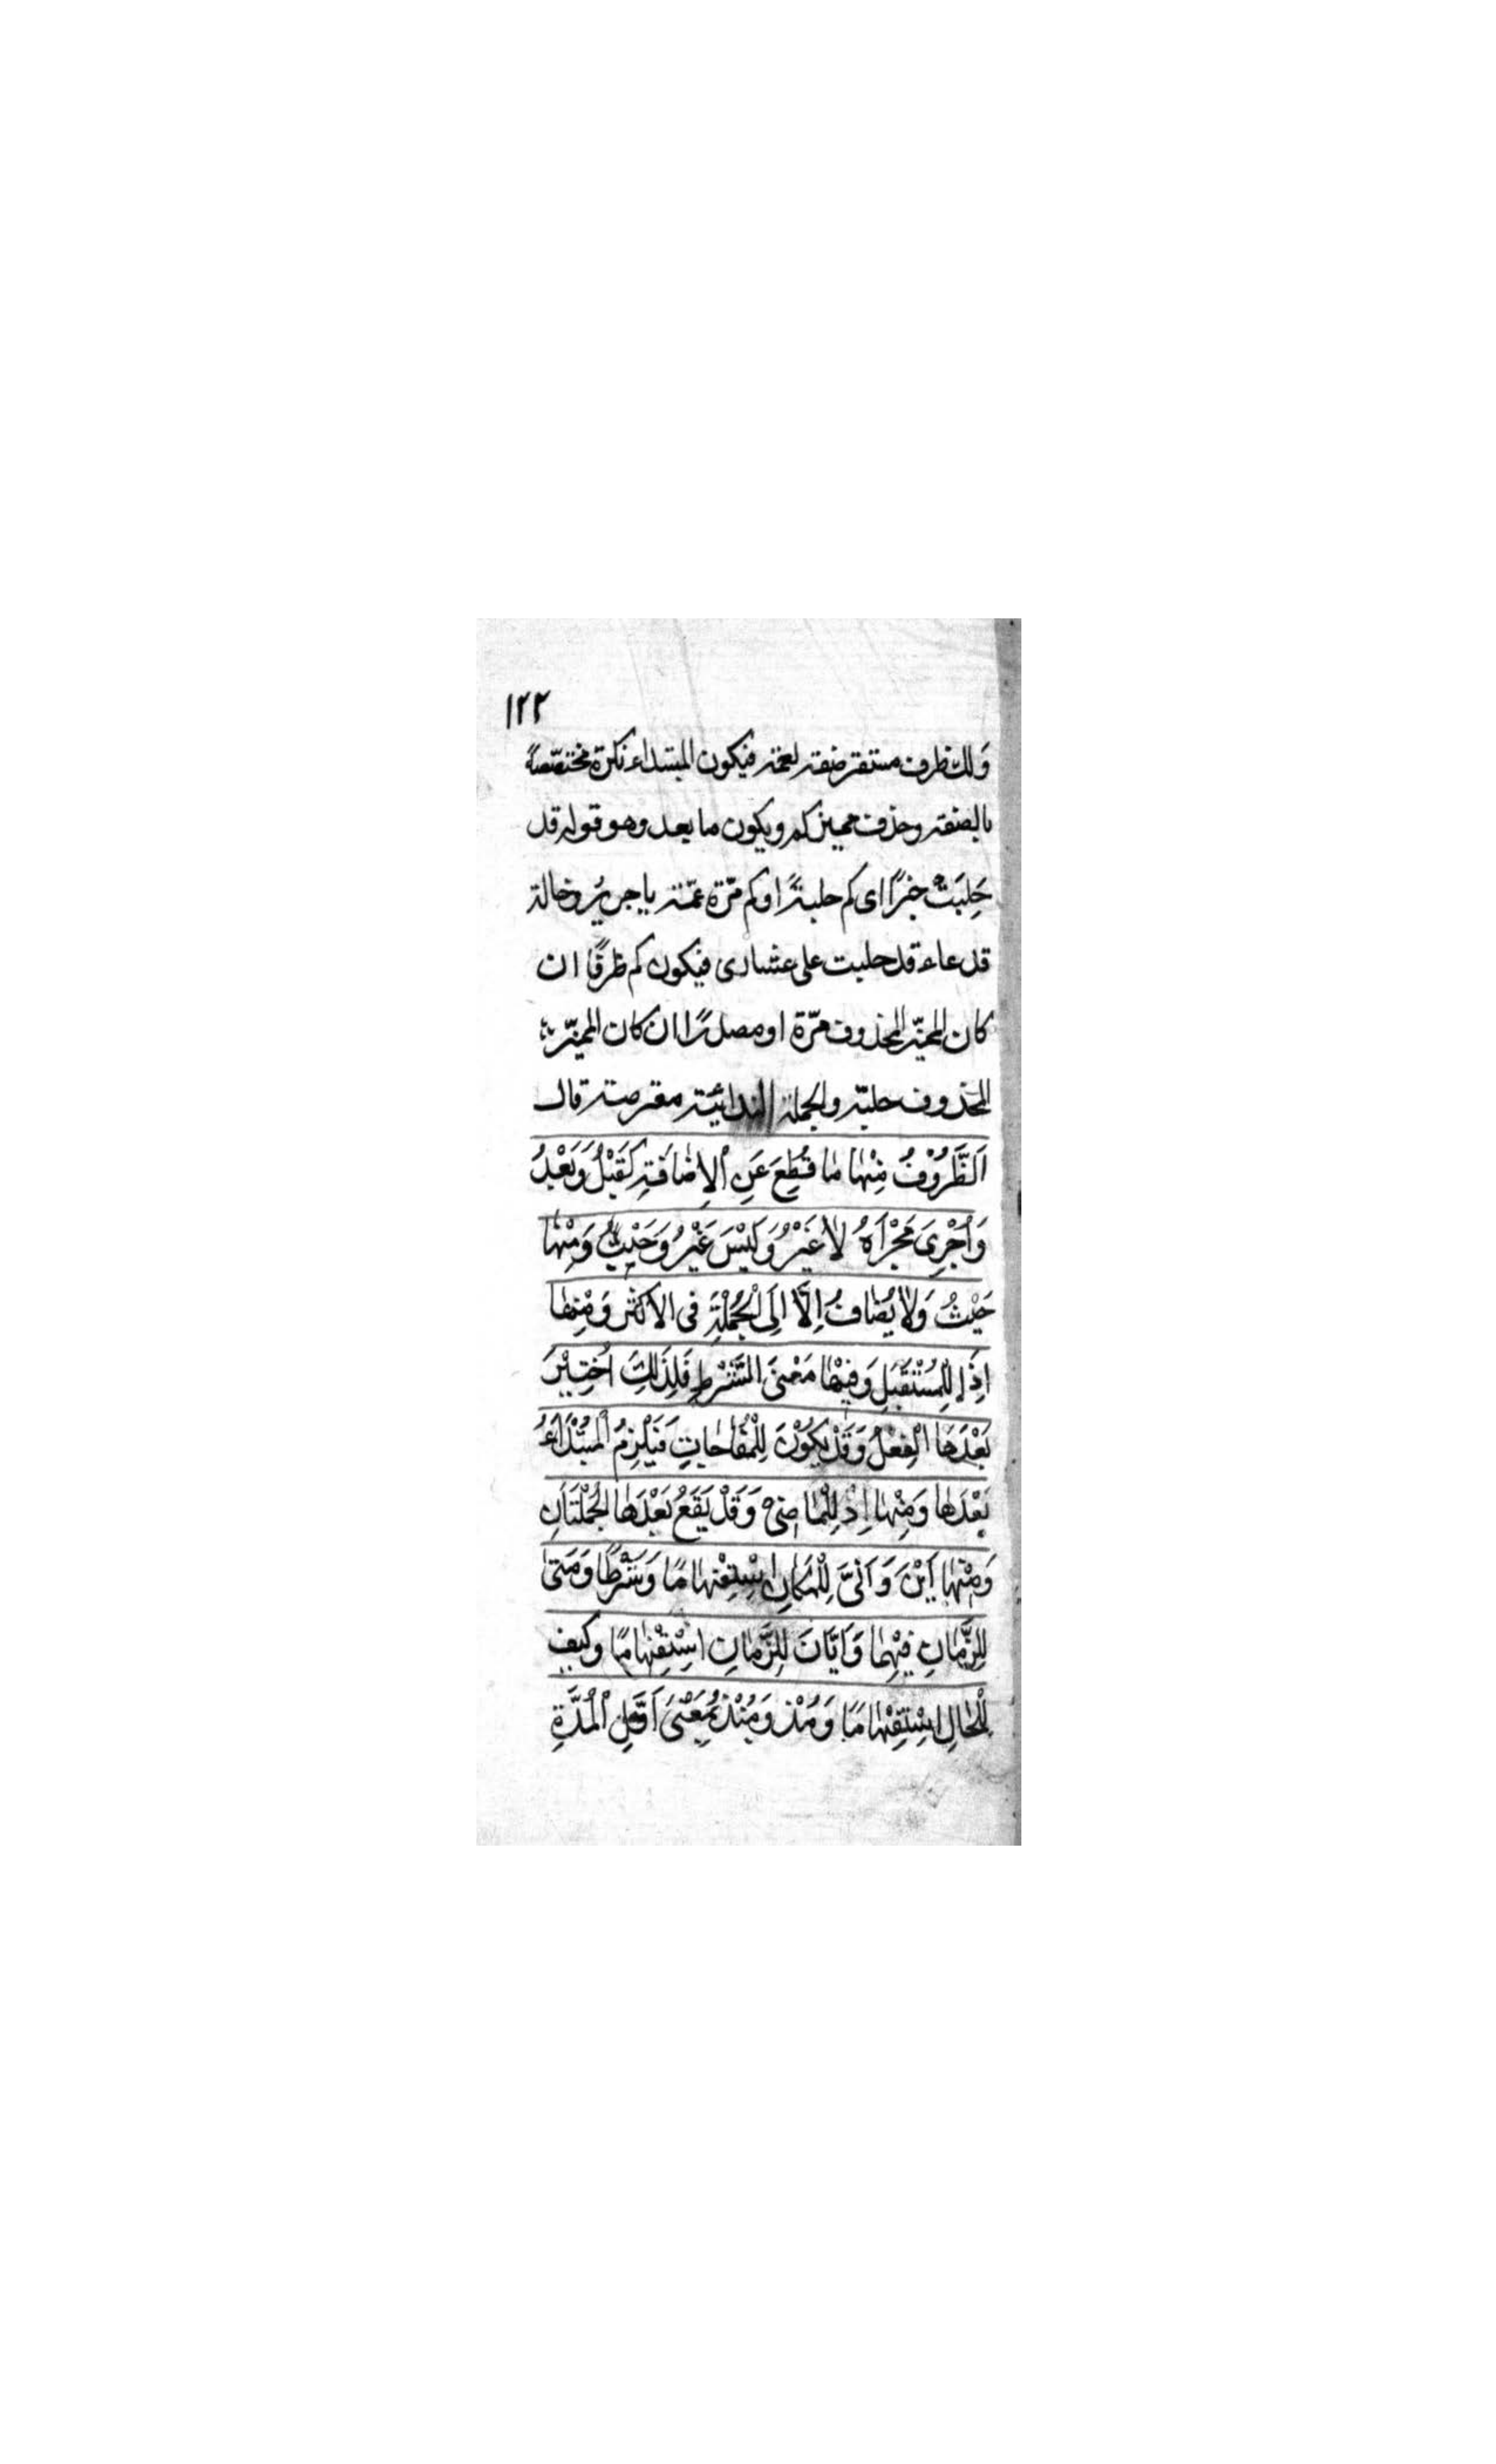 ١٢٢
وَلك ظرف مستقر صفة لعمة فيكون المبتداء نكرة مختصّصةً
بالصفة وحذف مميز كم ويكون ما بعد وهو قوله قد
حَلِبَتْ خبرًا اى كم حلبةً اوكم مرّة عمّة يا جريرُ وخالة
فدعاء قد حلبت على عشارى فيكون كم ظرفًا ان
كان المميّز المحذوف مرّة او مصدرًا ان كان المميّز
المحذوف حلبة والجملة الندائيّة معترضة قال
اَلظُّرُوْفُ مِنْهٰا مٰا قُطِعَ عَنِ الْاِضٰافَةِ كَقَبْلُ وَبَعْدُ
وَاُجْرِىَ مَجْرٰاهُ لاٰ غَيْرُ وَلَيْسَ غَيْرُ وَحَيْثُ وَمِنْهٰا
حَيْثُ وَلاٰ يُضٰافُ اِلَّا اِلَى الْجُمْلَةِ فى الاكثر وَمْنِهٰا
اِذٰا لِلْمُسْتَقْبَلِ وَفيهٰا مَعْنَى الشَّرْطِ فَلِذٰلِكَ اخْتِيْرَ
بَعْدَهَا الْفِعْلُ وَقَدْ يَكُوْنُ لِلْمُفٰاجٰاتِ فَيَلْزِمُ الْمُبْتَدَاءُ
بَعْدَهٰا وَمِنْهٰا اِذْ لِلْمٰاضِىْ وَقَدْ يَقَعُ بَعْدَهَا الْجُمْلَتَانِ
وَمِنْهٰا اَيْنَ وَ اَنّىٰ لِلْمَكٰانِ اسْتِفْهٰامًا وَشَرْطًا وَمَتىٰ
لِلزَّمٰانِ فيْهِمٰا وَاَيَّانَ لِلزَّمٰانِ اسْتِفْهٰامًا وكيف
لِلْحٰالِ اسْتِفْهٰامًا وَمُذْ وَمُنْذُ بِمَعْنَى اَوَّلِ الْمُدَّةِ